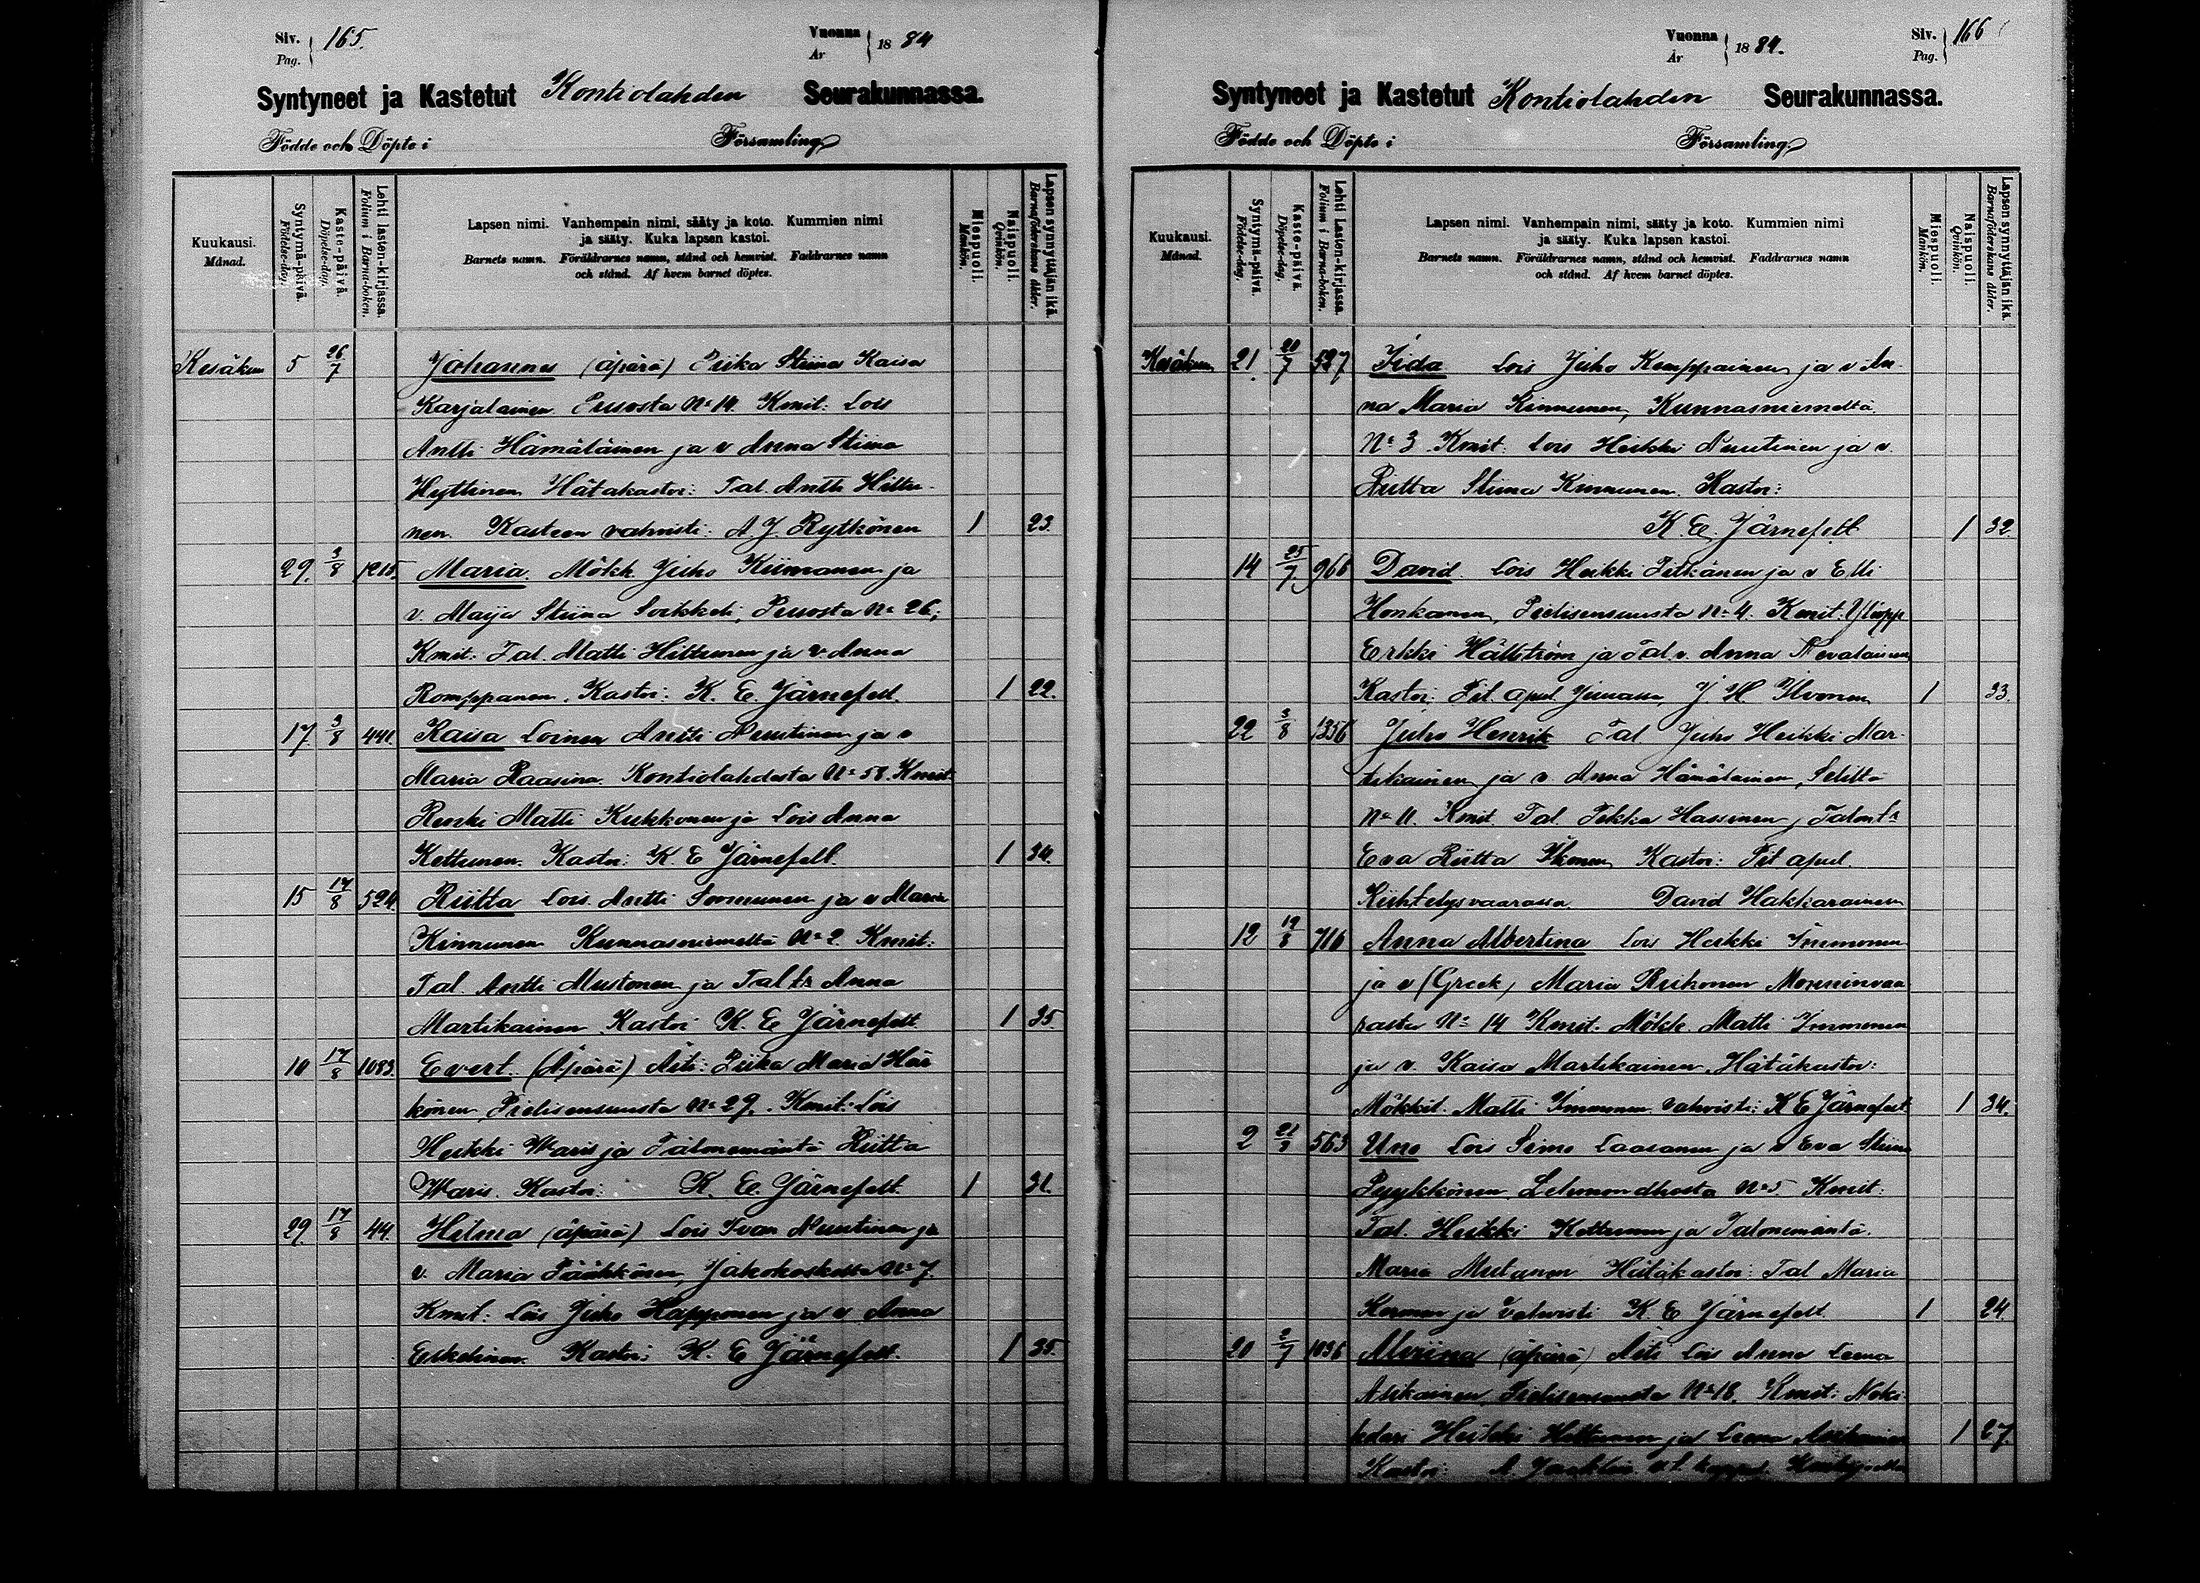 Siv. 165.
Pag.
Vuonna 1884
År
Syntyneet ja Kastetut Kontiolahden Seurakunnassa.
Födde och Döpte i Församling
Kuukausi.
Månad.
Syntymä-päivä.
Födelse-dag.
Kaste-päivä.
Döpelse-dag.
Lehti lasten-kirjassa.
Folium i Barna-boken.
Lapsen nimi. Vanhempain nimi, sääty ja koto. Kummien nimi
ja sääty. Kuka lapsen kastoi.
Barnets namn. Föräldrarnes namn, stånd och hemvist. Faddrarnes namn
och stånd. Af hvem barnet döptes.
Miespuoli.
Mankön.
Naispuoli.
Qvinkön.
Lapsen synnyttäjän ikä.
Barnaföderskans ålder.
Kesäkuu 5 26/7 Johannes (äpärä) Piika Stiina Kaisa
Karjalainen Puuosta No 14. Kmit: Lois
Antti Hämäläinen ja v Anna Stiina
Hyttinen Hätäkastoi: Tal. Antti Hiltu-
nen. Kasteen vahvisti: A. J. Rytkönen 1 23.
29. 3/8 1215. Maria. Mökk Juho Kiimanen ja
v. Maija Stiina Soikkeli, Puuosta No 26;
Kmit: Tal. Matti Hiltunen ja v. Anna
Romppanen. Kastoi: K. E. Järnefelt. 1 22.
17. 3/8 441. Kaisa Loinen Antti Nuutinen ja v
Maria Raasina. Kontiolahdesta No 58. Kmit:
Renki Matti Kukkonen ja Lois Anna
Kettunen. Kastoi: K. E Järnefelt. 1 34.
15 17/8 524. Riitta Lois. Antti Sormunen ja v Maria
Kinnunen Kunnasniemeltä No 2. Kmit:
Tal Antti Mustonen ja Tal tr Anna
Martikainen Kastoi K. E Järnefelt. 1 35.
10 17/8 1083. Evert. (Äpärä) Äiti: Piika Maria Här
könen Pielisensuusta No 29. Kmit: Lois
Heikki Waris ja Talonemäntä Riitta
Waris. Kastoi: K. E. Järnefelt. 1 31.
29. 17/8 44. Hilma (äpärä) Lois Ivar Nuutinen ja
v. Maria Päähkönen, Jakokoskelta No 7.
Kmit: Lois Juho Kapponen ja v Anna
Eskelinen. Kastoi: K. E Järnefelt. 1 35.
Vuonna 1884.
År
Siv. 166
Pag.
Syntyneet ja Kastetut Kontiolahden Seurakunnassa.
Födde och Döpte i Församling
Kuukausi.
Månad.
Syntymä-päivä.
Födelse-dag.
Kaste-päivä.
Döpelse-dag.
Lehti Lasten-kirjassa.
Folium i Barna-boken.
Lapsen nimi. Vanhempain nimi, sääty ja koto. Kummien nimi
ja sääty. Kuka lapsen kastoi.
Barnets namn. Föräldrarnes namn, stånd och hemvist. Faddrarnes namn
och stånd. Af hvem barnet döptes.
Miespuoli.
Mankön.
Naispuoli.
Qvinkön.
Lapsen synnyttäjän ikä.
Barnaföderskans ålder.
Kesäkuu 21. 20/7 527 Iida Lois Juho Komppainen ja v An-
na Maria Kinnunen, Kunnasniemeltä
No 3. Kmit: Lois Heikki Nuutinen ja v.
Riitta Stiina Kinnunen. Kastoi:
K. E. Järnefelt 1 32.
14 25/7 966 David. Lois Heikki Pitkänen ja v Elli
Honkanen, Pielisensuusta No 4. Kmit:
Erkki Hällström ja Tal. v. Anna Nevalainen
Kastoi: Pit. apul J. H. 1 33.
22 3/8 1356 Juho Henrik Tal Juho Heikki Mar-
tikainen ja v Anna Hämäläinen,
No 11. Kmit. Tal. Pekka Hassinen j Talon tr
Eva Riitta Ikonen Kastoi: Pit apul.
Kiihtelysvaarassa David Hakkarainen
12 19/8 716 Anna Albertina Lois Heikki Immonen
ja v (Greek) Maria Riihonen Monninvaa
rasta No 14 Kmit. Mökk Matti Immonen
ja v. Kaisa Martikainen. Hätäkastoi:
Mökkit. Matti Immonen Vahvisti: K E Järnefelt 1 34.
2 21/8 563 Uno Lois Simo Laasanen ja v Eva Stiina
Pyykkönen, No 5 Kmit:
Tal. Heikki Kettunen ja Talonemäntä
Maria Mutanen Hätäkastoi: Tal Maria
ja Vahvisti K. E Järnefelt 1 24.
20 2/7 1036 Miina (äpärä) Äiti Lois Anna Leena
Asikainen, Pielisensuusta No 18. Kmit: Noki-
kolari Heikki Hiltunen ja Leena Asikainen 1 27.
Kastoi: